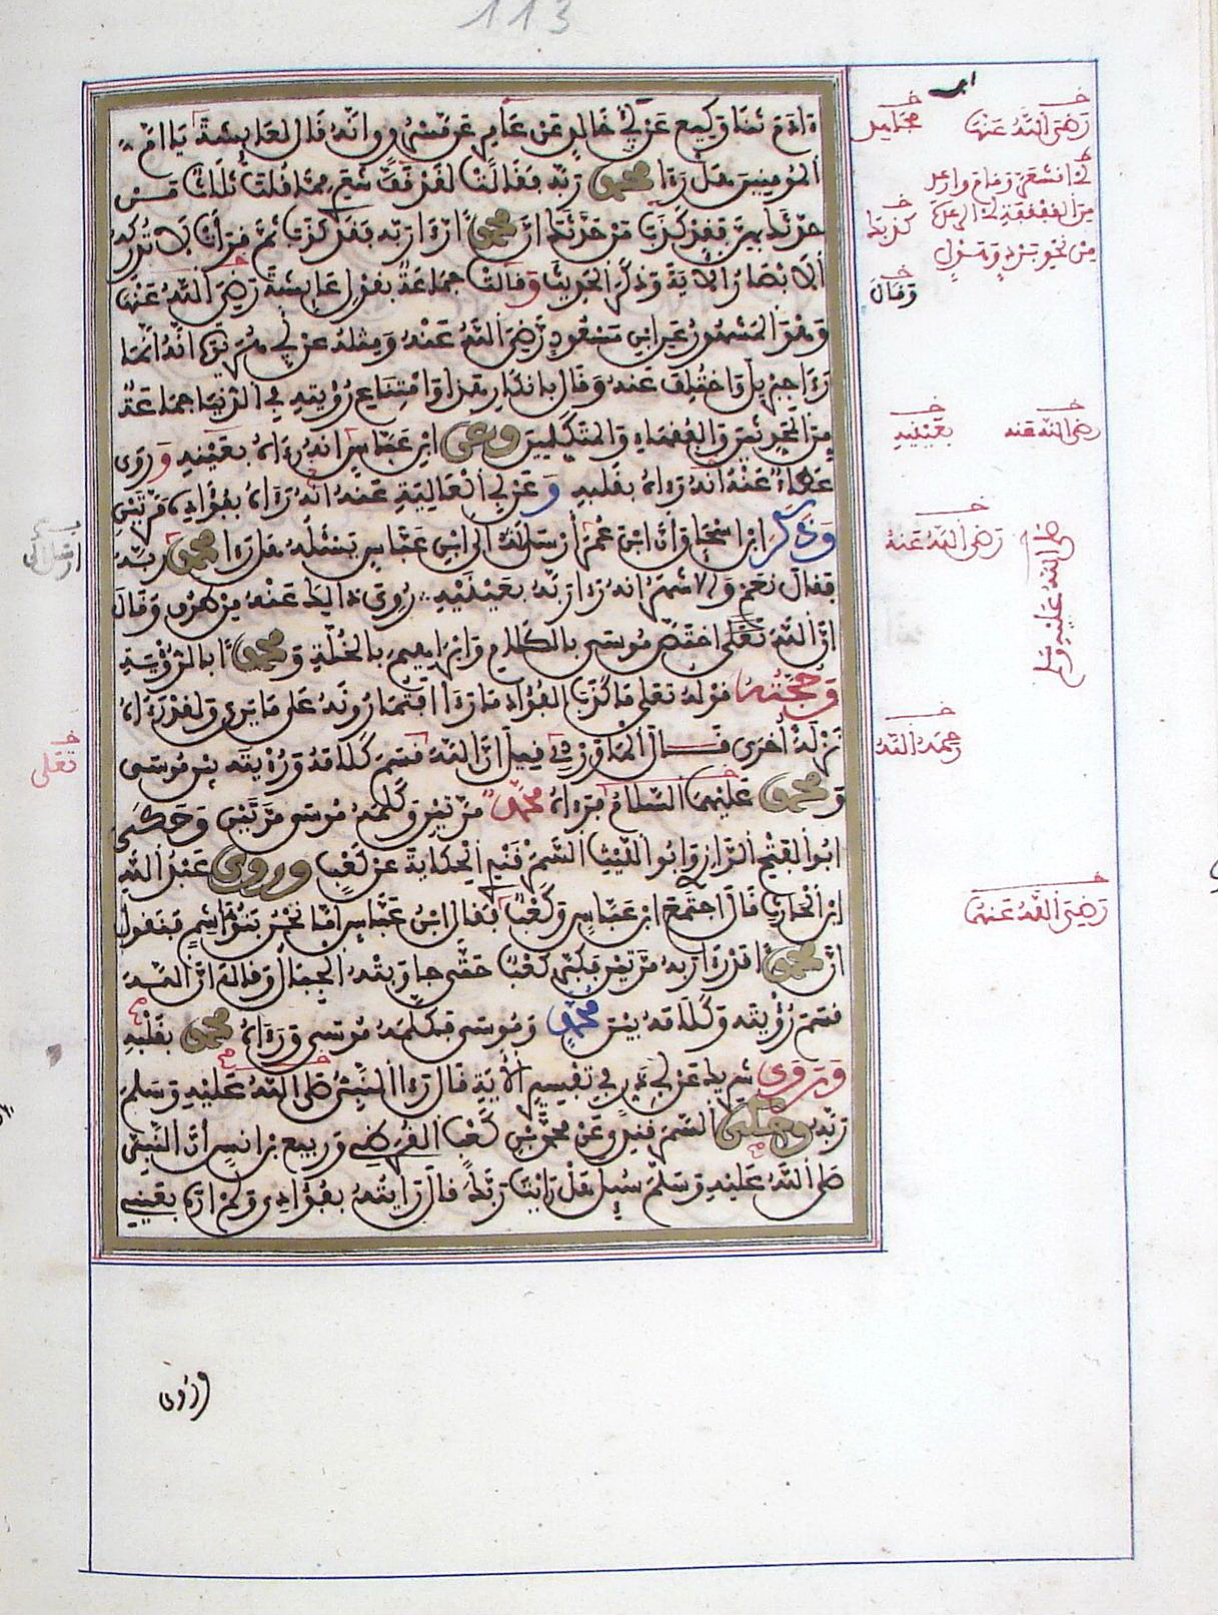 113
ءادم ثنا وكيع عن ابي خالد عن عامر عن مسروق انه قال لعايشة يا ام
المومنين هل رءا محمد ربه فقالت لقد قف شعرى مما قلت ثلاث من
حدثك بهن فقد كذب من حدثك ان محمدا رءا ربه فقد كذب ثم قرات لا تدركه
الابصار الاية وذكر الحديث وقالت جماعة بقول عايشة رضي الله عنها
وهو المشهور عن ابن مسعود رضي الله عنه ومثله عن ابي هريرة انه انما
رءا جبريل واختلف عنه وقال بانكار هذا وامتناع رؤيته في الدنيا جماعة
من المحدثين والفقهاء والمتكلمين وعن ابن عباس انه رءاه بعينه وروى
عطاء عنه انه رءاه بقلبه وعن ابي العالية عنه انه رءاه بفؤاده مرتين
وذكر ابن اسحاق ان ابن عمر ارسل الى ابن عباس يسئله هل رءا محمد ربه
فقال نعم والاشهر انه رءا ربه بعينيه روى ذالك عنه من طرق وقال
ان الله تعلى اختص موسى بالكلام وابراهيم بالخلة ومحمدا بالرؤية
وحجته قوله تعلى ما كذب الفؤاد ما رءا افتمارونه على ما يرى ولقد رءاه
نزلة اخرى قال الماوردي قيل ان الله قسم كلامه ورؤيته بين موسى
ومحمد عليهما السلام فرءاه محمد مرتين وكلمه موسى مرتين وحكى
ابو الفتح الرازي وابو الليث السمرقندي الحكاية عن كعب وروى عبد الله
ابن الحارث قال اجتمع ابن عباس وكعب فقال ابن عباس اما نحن بنو هاشم فنقول
ان محمدا قد رءا ربه مرتين فكبر كعب حتى جاوبته الجبال وقال ان الله
قسم رؤيته وكلامه بين محمد وموسى فكلمه موسى ورءاه محمد بقلبه
وروى شريك عن ابي ذر في تفسير الاية قال رءا النبي صلى الله عليه وسلم
ربه وحكى السمرقندي عن محمد بن كعب القرظي وربيع بن انس ان النبي
صلى الله عليه وسلم سيل هل رايت ربك قال رايته بفؤادي ولم اره بعيني
رضي الله عنها
مجاهد
وقال
رضي الله عنه
بعينيه
رضي الله عنه
صلى الله عليه وسلم
رحمه الله
تعلى
رضي الله عنهم
وروى